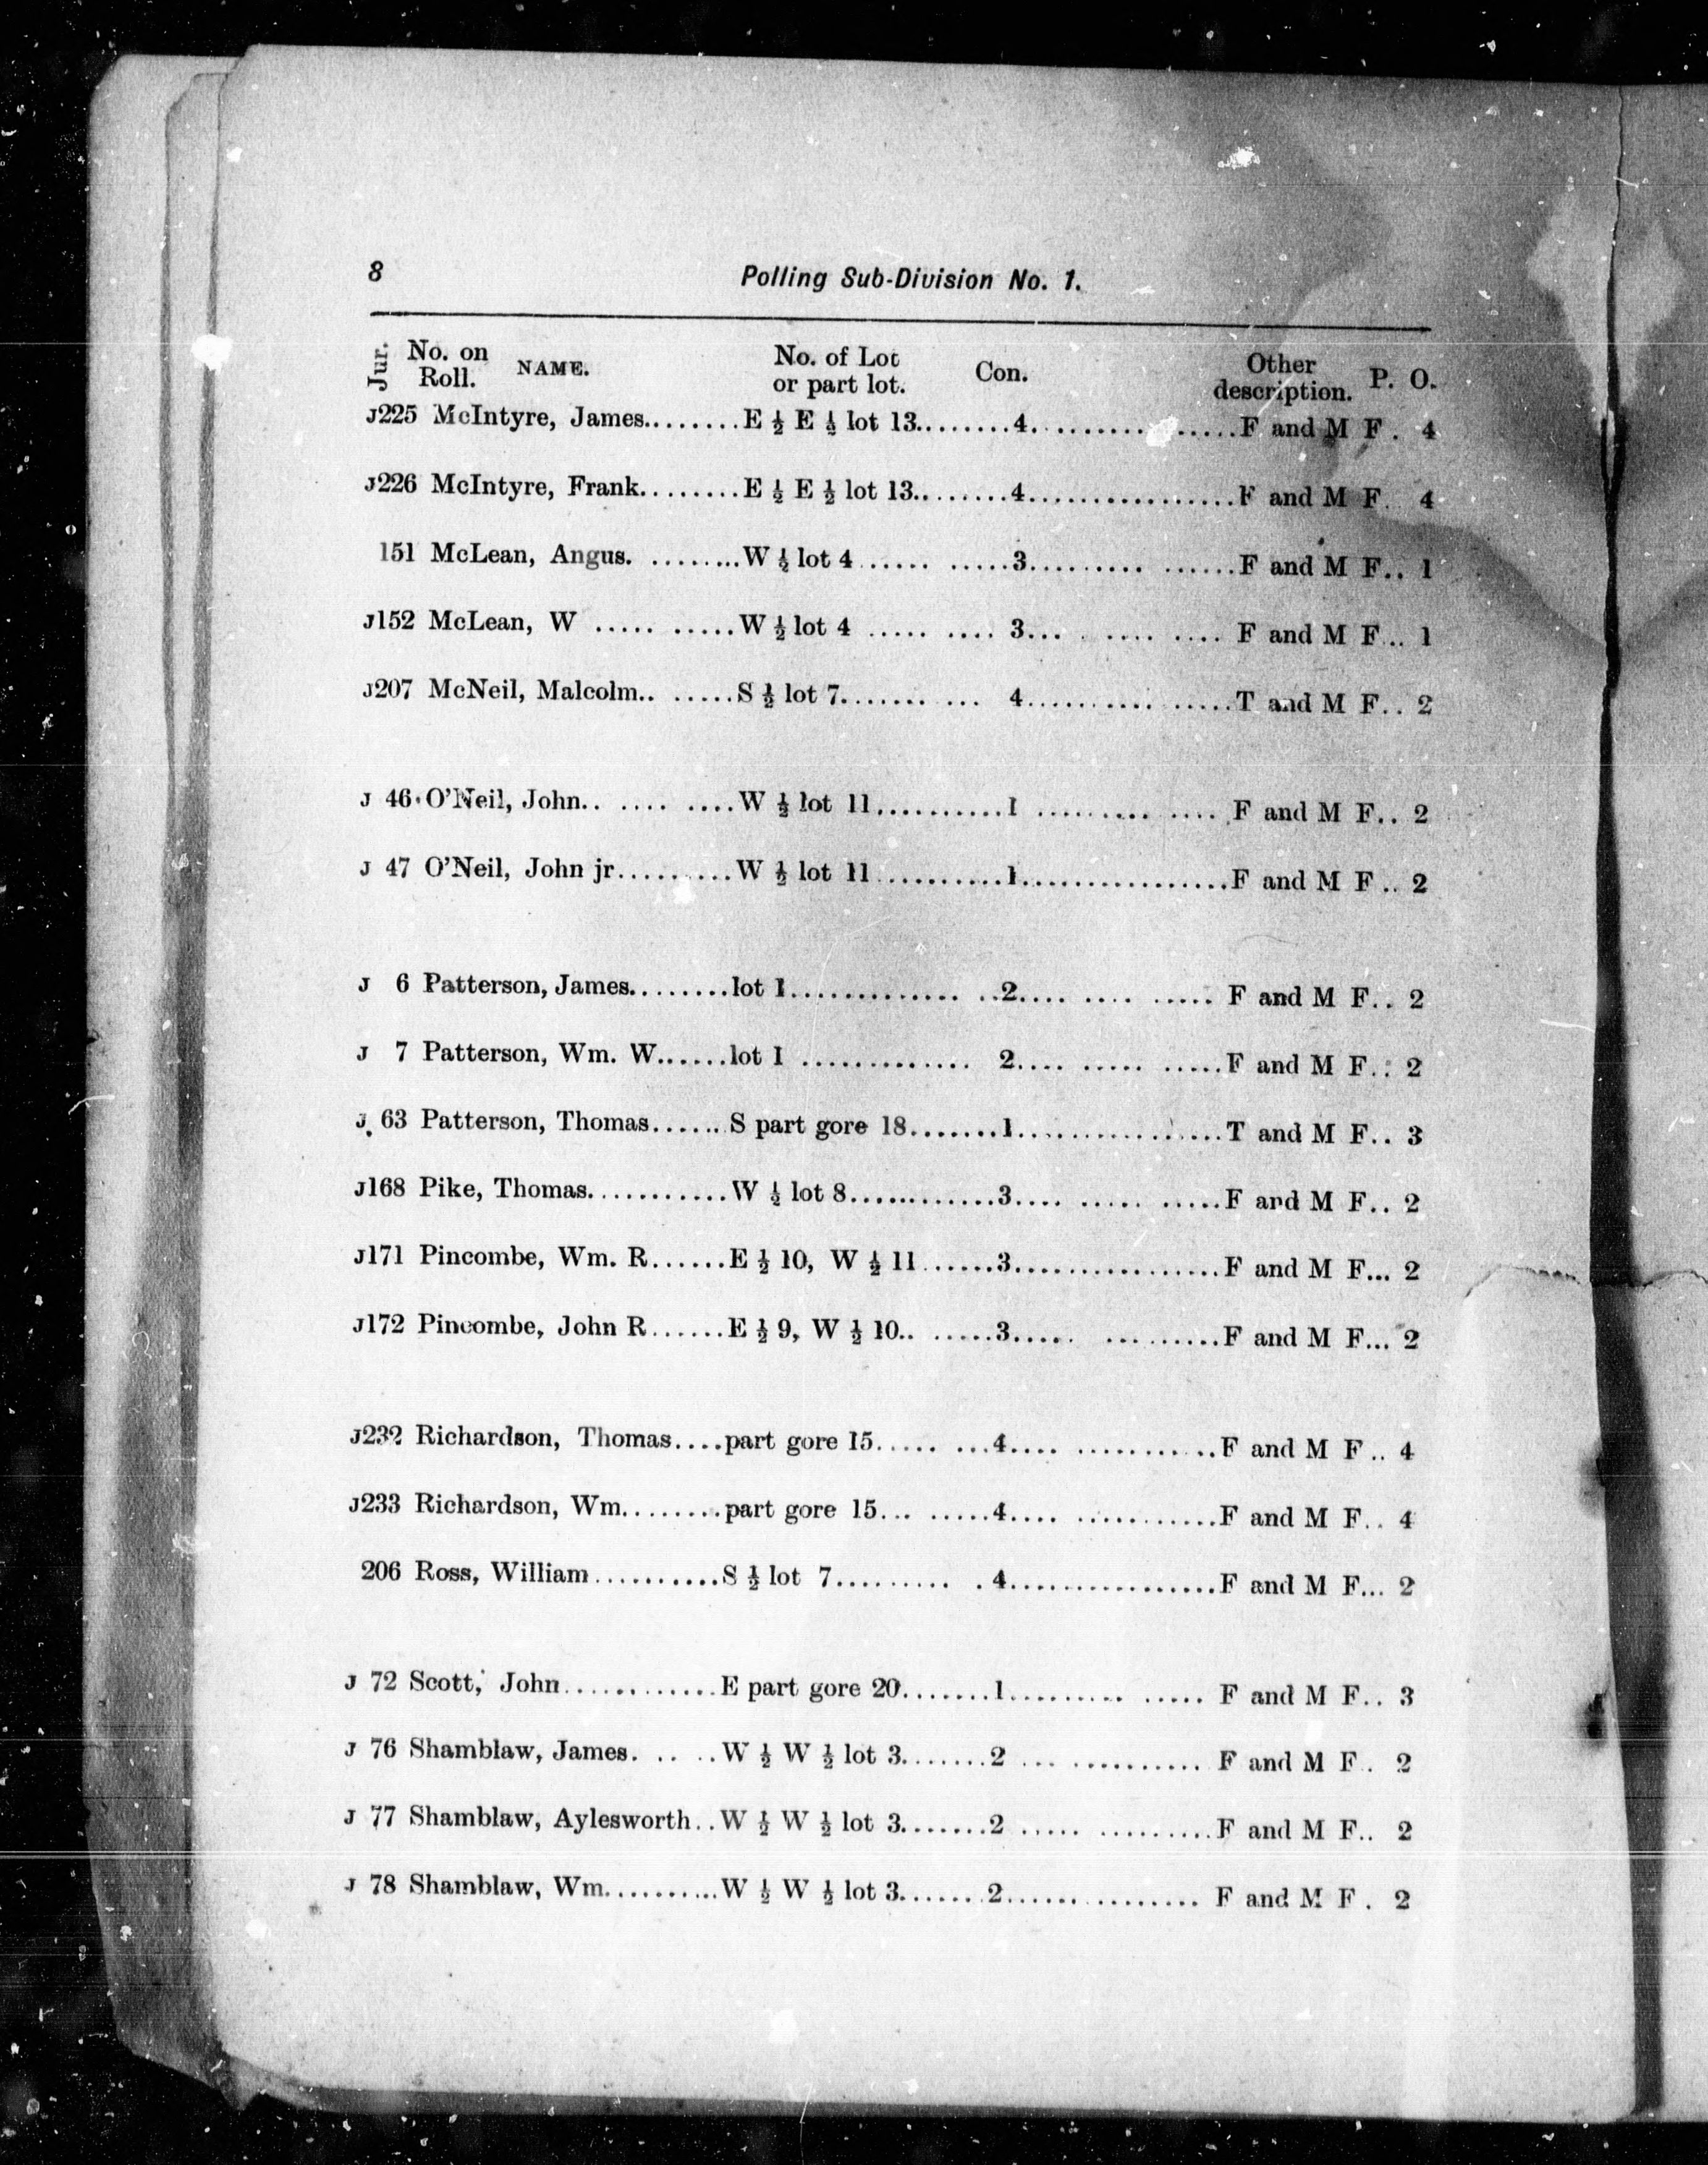 8 Polling Sub-Division No. 1.
Jur. No. on Roll. NAME. No. of Lot or part lot. Con. Other description. P. O.
J225 McIntyre, James........E ½ E ½ lot 13.........4. ......... .....F and M F . 4
J226 McIntyre, Frank.........E ½ E ½ lot 13.........4.................F and M F. 4
151 McLean, Angus. ........W ½ lot 4...... .....3.......... ......F and M F.. 1
J152 McLean, W ..... .....W ½ lot 4 ..... .... 3... . .... .... F and M F... 1
J207 McNeil, Malcolm.. .....S ½ lot 7........ ... 4........... .....T and M F.. 2
J 46 O'Neil, John.. .... ....W ½ lot 11...........1 .......... .... F and M F.. 2
J 47 O'Neil, John jr..........W ½ lot 11...........1.................F and M F.. 2
J 6 Patterson, James........lot 1.............. ..2.... .... ..... F and M F.. 2
J 7 Patterson, Wm. W......lot 1 .............. 2.... ..... .....F and M F.. 2
J 63 Patterson, Thomas......S part gore 18.......1.................T and M F.. 3
J168 Pike, Thomas............W ½ lot 8............3.... ..... .....F and M F.. 2
J171 Pincombe, Wm. R......E ½ 10, W ½ 11......3.................F and M F... 2
J172 Pincombe, John R......E ½ 9, W ½ 10.. .....3..... .........F and M F... 2
J232 Richardson, Thomas....part gore 15..... ...4.... ...........F and M F.. 4
J233 Richardson, Wm........part gore 15... .....4.... ...........F and M F.. 4
206 Ross, William..........S ½ lot 7......... .4.................F and M F... 2
J 72 Scott, John............E part gore 20.......1.......... ..... F and M F.. 3
J 76 Shamblaw, James. .. ..W ½ W ½ lot 3.......2 ... .......... F and M F. 2
J 77 Shamblaw, Aylesworth..W ½ W ½ lot 3.......2 ..... .........F and M F.. 2
J 78 Shamblaw, Wm..........W ½ W ½ lot 3.......2................ F and M F . 2